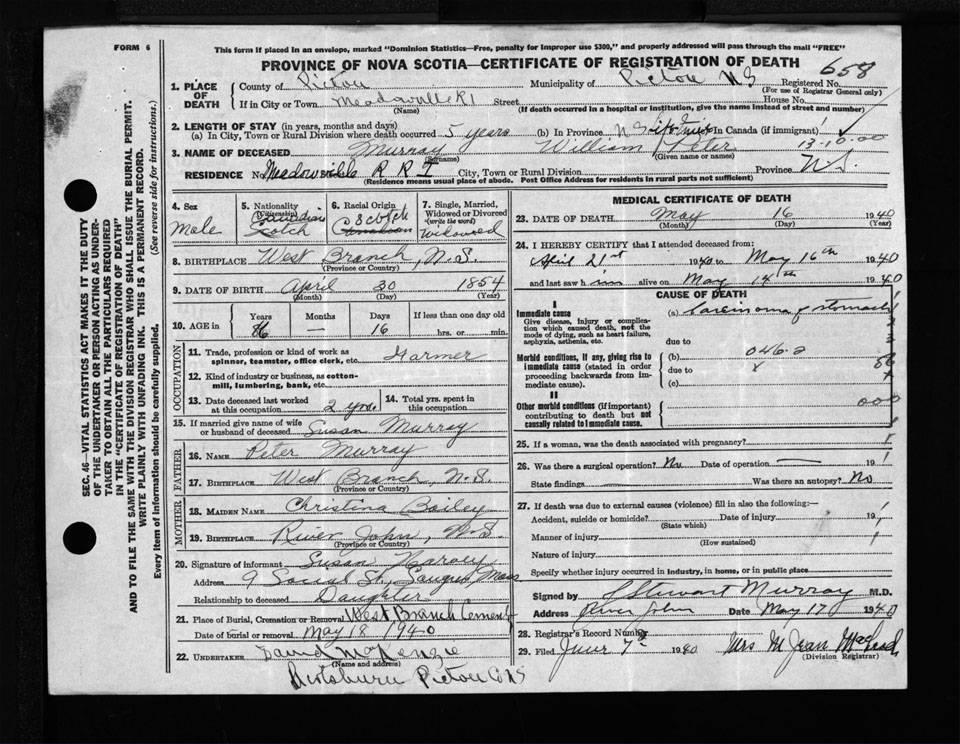 FORM 6
This form if placed in an envelope, marked "Dominion Statistics—Free, penalty for improper use $300," and properly addressed will pass through the mail "FREE"
PROVINCE OF NOVA SCOTIA—CERTIFICATE OF REGISTRATION OF DEATH
658
1. PLACE OF DEATH
County of Pictou Municipality of Pictou NS Registered No.
(For use of Registrar General only)
If in City or Town Meadowville R1 Street House No.
(Name) (If death occurred in a hospital or institution, give the name instead of street and number)
2. LENGTH OF STAY (in years, months and days)
(a) In City, Town or Rural Division where death occurred 5 years (b) In Province NS in Canada (if immigrant)
13-10-00
3. NAME OF DECEASED Murray William Peter
(Surname) (Given name or names)
RESIDENCE No. Meadowville R R I City, Town or Rural Division Province N.S.
(Residence means usual place of abode. Post Office Address for residents in rural parts not sufficient)
4. Sex Male
5. Nationality (Citizenship) Canadian Scotch
6. Racial Origin Scotch Canadian
7. Single, Married, Widowed or Divorced (write the word) Widowed
8. BIRTHPLACE West Branch, N.S.
(Province or Country)
9. DATE OF BIRTH April 30 1854
(Month) (Day) (Year)
10. AGE in Years Months Days If less than one day old
86 — 16 hrs. or min.
OCCUPATION
11. Trade, profession or kind of work as spinner, teamster, office clerk, etc. Farmer
12. Kind of industry or business, as cotton-mill, lumbering, bank, etc.
13. Date deceased last worked at this occupation 2 yrs.
14. Total yrs. spent in this occupation
15. If married give name of wife or husband of deceased Susan Murray
FATHER
16. NAME Peter Murray
17. BIRTHPLACE West Branch, N.S.
(Province or Country)
MOTHER
18. MAIDEN NAME Christina Bailey
19. BIRTHPLACE River John, N.S.
(Province or Country)
20. Signature of informant Susan
Address 9 Social St., Saugus, Mass
Relationship to deceased Daughter
21. Place of Burial, Cremation or Removal West Branch Cementy
Date of burial or removal May 18 1940
22. UNDERTAKER David McKenzie
(Name and address)
Pictou Co NS
MEDICAL CERTIFICATE OF DEATH
23. DATE OF DEATH May 16 1940
(Month) (Day) (Year)
24. I HEREBY CERTIFY that I attended deceased from:
April 21st 1940 to May 16th 1940
and last saw him alive on May 14th 1940
CAUSE OF DEATH
I
Immediate cause
Give disease, injury or complication which caused death, not the mode of dying, such as heart failure, asphyxia, asthenia, etc.
(a) Carcinoma of stomach
due to
Morbid conditions, if any, giving rise to immediate cause (stated in order proceeding backwards from immediate cause).
(b) 046.2
due to
(c)
86
000
II
Other morbid conditions (if important) contributing to death but not causally related to immediate cause.
25. If a woman, was the death associated with pregnancy?
26. Was there a surgical operation? No Date of operation — 19
State findings Was there an autopsy? No
27. If death was due to external causes (violence) fill in also the following:
Accident, suicide or homicide? Date of injury 19
(State which)
Manner of injury
(How sustained)
Nature of injury
Specify whether injury occurred in industry, in home, or in public place
Signed by J Stewart Murray M.D.
Address River John Date May 17 1940
28. Registrar's Record Number
29. Filed June 7th 1940 Mrs M Jean MacLeod
(Division Registrar)
SEC. 46—VITAL STATISTICS ACT MAKES IT THE DUTY
OF THE UNDERTAKER OR PERSON ACTING AS UNDERTAKER TO OBTAIN ALL THE PARTICULARS REQUIRED
IN THE "CERTIFICATE OF REGISTRATION OF DEATH"
AND TO FILE THE SAME WITH THE DIVISION REGISTRAR WHO SHALL ISSUE THE BURIAL PERMIT.
WRITE PLAINLY WITH UNFADING INK. THIS IS A PERMANENT RECORD.
Every item of information should be carefully supplied. (See reverse side for instructions.)